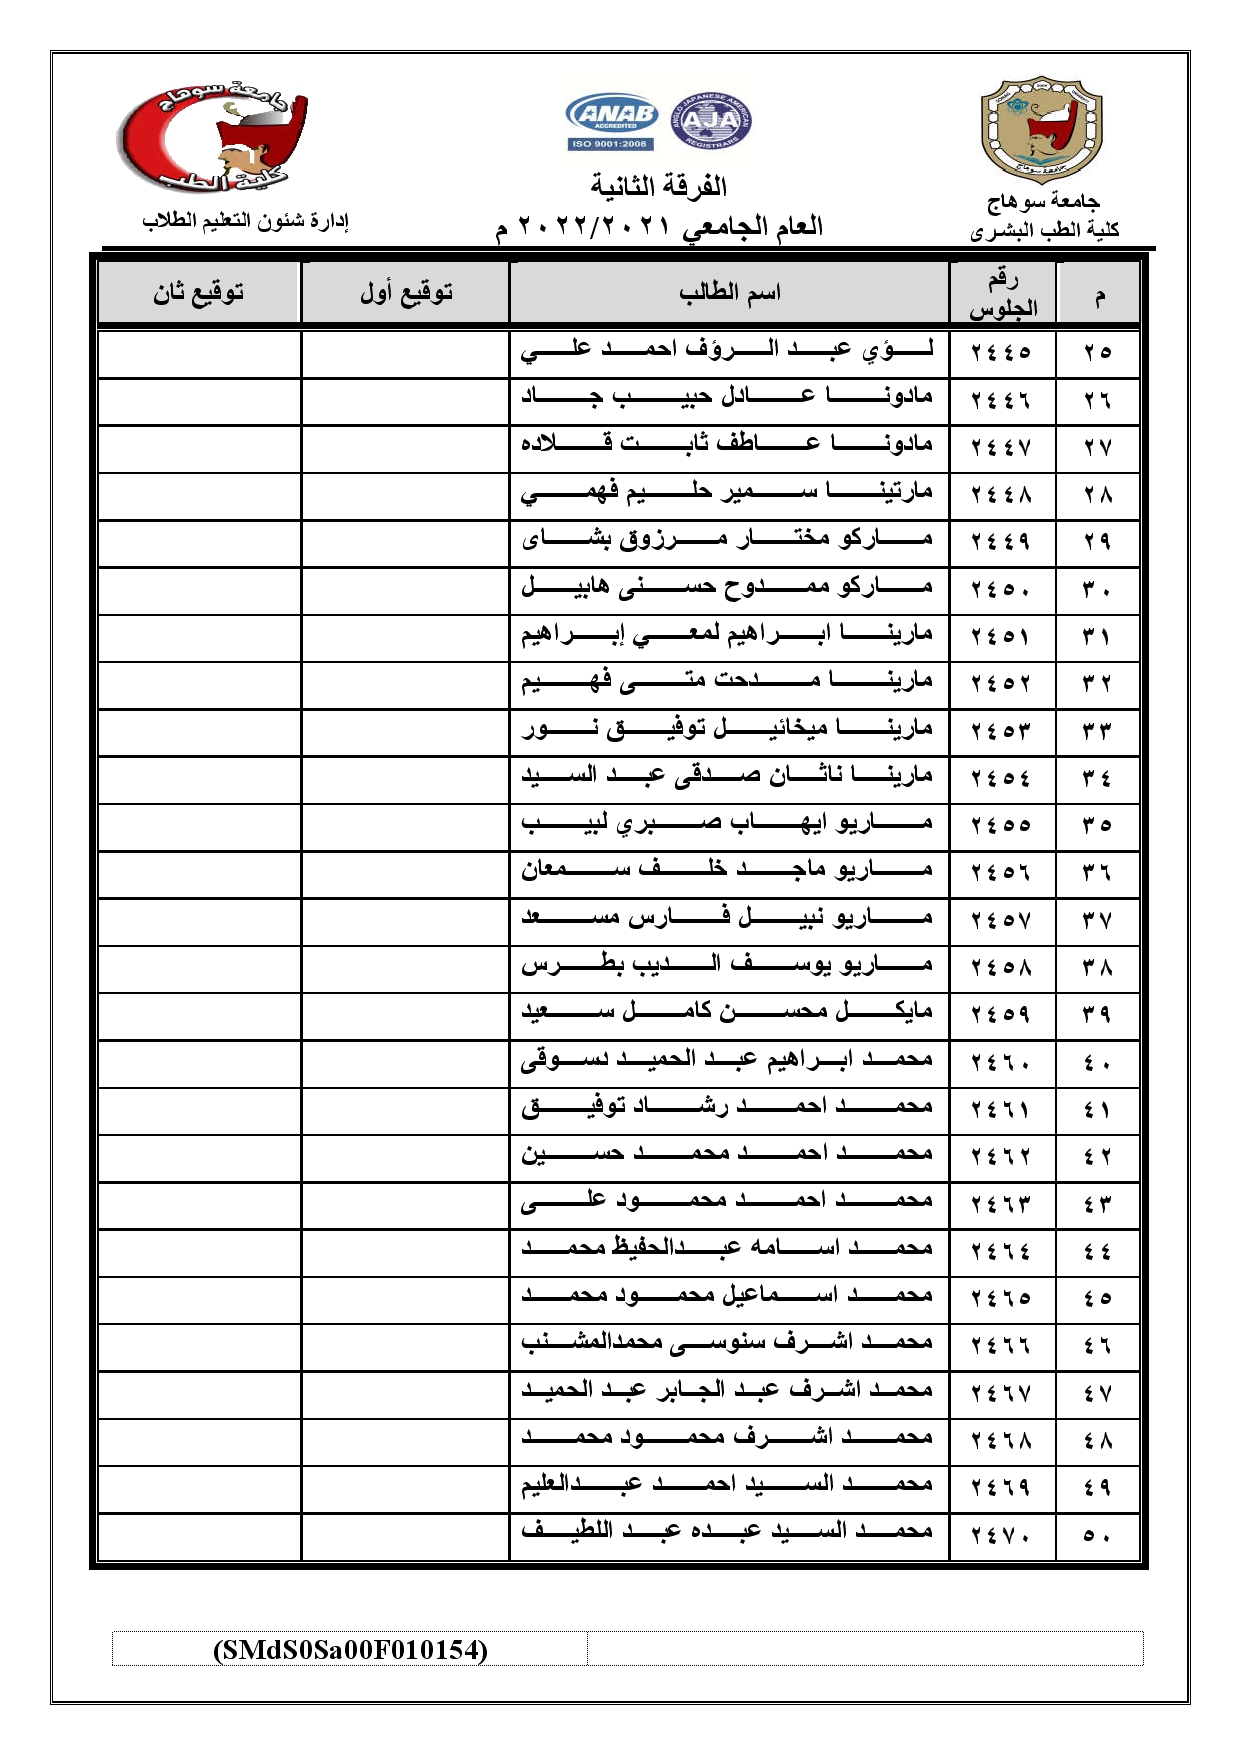 جامعة سوهاج
كلية الطب
ANAB
ACCREDITED
ISO 9001:2008
ANGLO JAPANESE AMERICAN
AJA
REGISTRARS
جامعة سوهاج
جامعة سوهاج
كلية الطب البشرى
الفرقة الثانية
العام الجامعي ٢٠٢٢/٢٠٢١ م
إدارة شئون التعليم الطلاب
م رقم الجلوس اسم الطالب توقيع أول توقيع ثان
٢٥ ٢٤٤٥ لؤي عبد الرؤف احمد علي
٢٦ ٢٤٤٦ مادونا عادل حبيب جاد
٢٧ ٢٤٤٧ مادونا عاطف ثابت قلاده
٢٨ ٢٤٤٨ مارتينا سمير حليم فهمي
٢٩ ٢٤٤٩ ماركو مختار مرزوق بشاى
٣٠ ٢٤٥٠ ماركو ممدوح حسنى هابيل
٣١ ٢٤٥١ مارينا ابراهيم لمعي إبراهيم
٣٢ ٢٤٥٢ مارينا مدحت متى فهيم
٣٣ ٢٤٥٣ مارينا ميخائيل توفيق نور
٣٤ ٢٤٥٤ مارينا ناثان صدقى عبد السيد
٣٥ ٢٤٥٥ ماريو ايهاب صبري لبيب
٣٦ ٢٤٥٦ ماريو ماجد خلف سمعان
٣٧ ٢٤٥٧ ماريو نبيل فارس مسعد
٣٨ ٢٤٥٨ ماريو يوسف الديب بطرس
٣٩ ٢٤٥٩ مايكل محسن كامل سعيد
٤٠ ٢٤٦٠ محمد ابراهيم عبد الحميد دسوقى
٤١ ٢٤٦١ محمد احمد رشاد توفيق
٤٢ ٢٤٦٢ محمد احمد محمد حسين
٤٣ ٢٤٦٣ محمد احمد محمود على
٤٤ ٢٤٦٤ محمد اسامه عبدالحفيظ محمد
٤٥ ٢٤٦٥ محمد اسماعيل محمود محمد
٤٦ ٢٤٦٦ محمد اشرف سنوسى محمدالمشنب
٤٧ ٢٤٦٧ محمد اشرف عبد الجابر عبد الحميد
٤٨ ٢٤٦٨ محمد اشرف محمود محمد
٤٩ ٢٤٦٩ محمد السيد احمد عبدالعليم
٥٠ ٢٤٧٠ محمد السيد عبده عبد اللطيف
(SMdS0Sa00F010154)